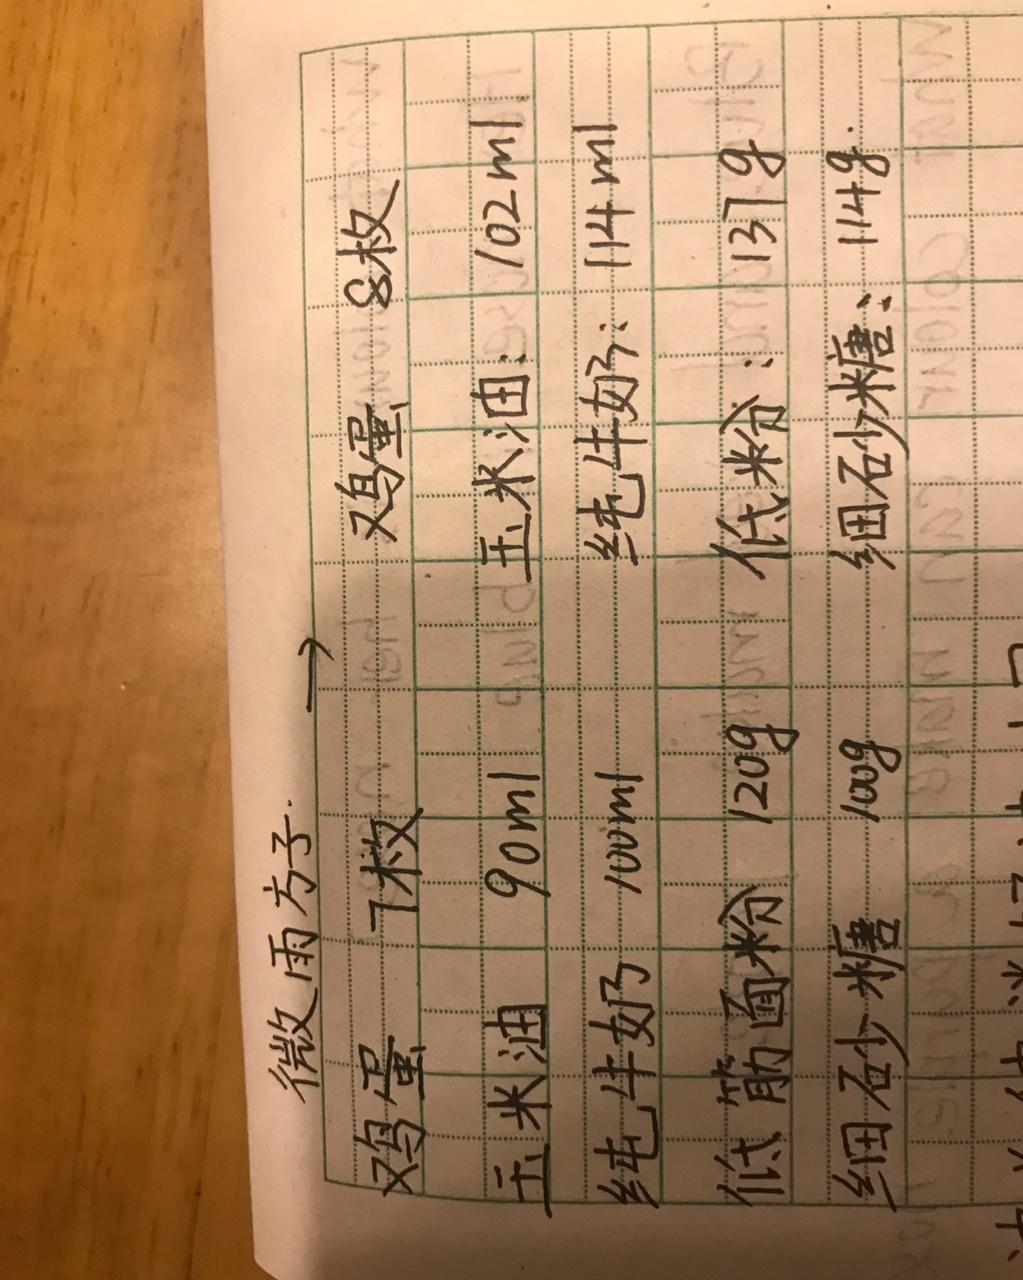 微雨方子. →
鸡蛋 7枚 鸡蛋 8枚
玉米油 90ml 玉米油: 102ml
纯牛奶 100ml 纯牛奶: 114ml
低筋面粉 120g 低粉: 137g
细砂糖 100g 细砂糖: 114g.